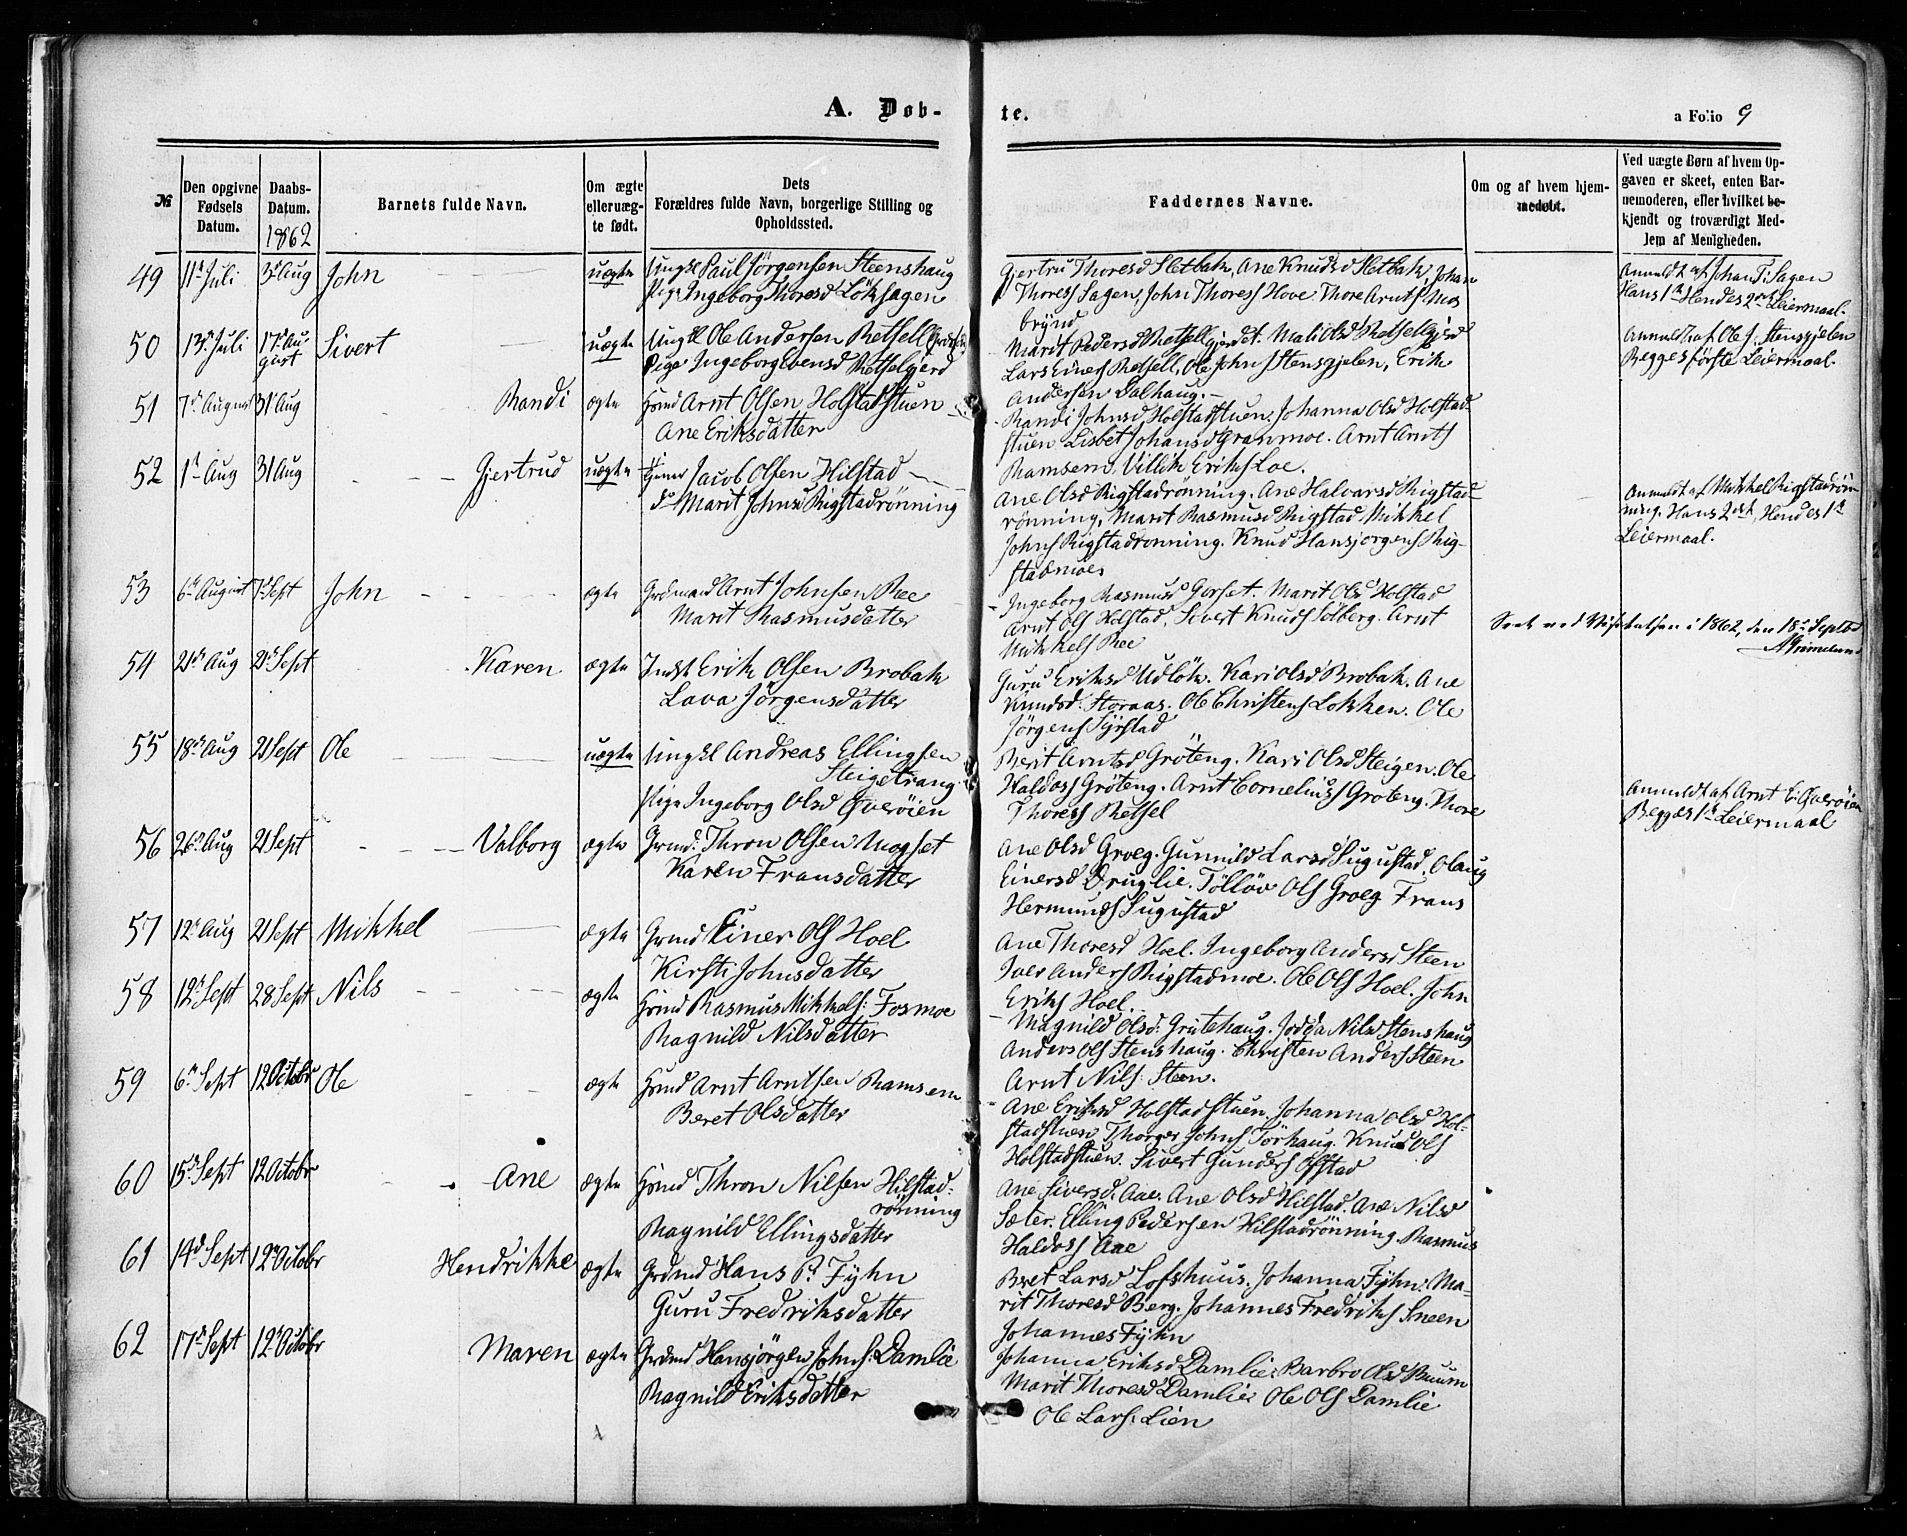 A. Døb-
te.
a Folio 9
№
Den opgivne Fødsels Datum.
Daabs-Datum. 1862
Barnets fulde Navn.
Om ægte eller uægte født.
Dets Forældres fulde Navn, borgerlige Stilling og Opholdssted.
Faddernes Navne.
Om og af hvem hjemmedøbt.
Ved uægte Børn af hvem Opgaven er skeet, enten Barnemoderen, eller hvilket bekjendt og troværdigt Medlem af Menigheden.
49 11te Juli 3die Aug John uægte Ungkl Paul Jörgensen Steenshaug
Pige Ingeborg Thoresd Löksagen
Gjertru Thoresd Sletbak, Ane Knudsd Sletbak, Johan
Thoress Sagen, John Thoress Hove Thore Arnts Mos
brynd
Anmeldt af Johan T: Sagen
Hans 1te Hendes 2det Leiermaal.
50 13de Juli 17de August Sivert uægte Ungkl Ole Andersen Retsell
Pige Ingeborg Ebensd Retselgjerd
Marit Pedersd Retsellgjerdet. Mali Olsd Retselgjerd
Lars Einers Retsell, Ole Johns Stensgjelen, Erik
Andersen Dalhaug.
Anmeldt af Ole J. Stensgjelen
Begges förste Leiermaal.
51 7de August 31 Aug Randi ægte Hmd Arnt Olsen Holstadstuen
Ane Eriksdatter
Randi Johnsd Holstadstuen, Johanna Olsd Holstad-
stuen Lisbet Johansd Granmoe. Arnt Arnts
Ramsem. Villik Eriks Loe.
52 1te Aug 31 Aug Gjertrud uægte Jacob Olsen Hilstad
do Marit Johnsd Rigstadrönning
Ane Olsd Rigstadrönning. Ane Halvarsd Rigstad-
rönning, Marit Rasmusd Rigstad Mikkel
Johns Rigstadrönning. Knud Hansjorgens Rig-
stadmoes
Anmeldt af Mikkel Rigstadrön
ning. Hans 2det, Hendes 1te
Leiermaal.
53 6te August 7de Sept John ægte Grdmand Arnt Johnsen Ree
Marit Rasmusdatter
Ingeborg Rasmusd Gorset. Marit Olsd Holstad
Arnt Ols Holstad, Sivert Knuds Solberg. Arnt
Mikkels Ree
Seet ved Visitatsen i 1862, den 18de Septbr
AGrimelund
54 21de Aug 21de Sept Karen ægte Indst Erik Olsen Brobak
Lava Jörgensdatter
Guru Eriksd Udlök. Kari Olsd Brobak. Ane
Knudsd. Storaas. Ole Christens Lokken. Ole
Jørgens Syrstad
55 18de Aug 21 Sept Ole uægte Ungkl Andreas Ellingsen
Steigetrang
Pige Ingeborg Olsd Qveröien
Berit Arntsd Gröteng. Kari Olsd Steigen. Ole
Haldos Gröteng. Arnt Cornelius Gröteng. Thore
Thoress Retsel
Anmeldt af Arnt E: Qveröien
Begges 1te Leiermaal
56 26de Aug 21 Sept Valborg ægte Grmd: Thron Olsen Mogset
Karen Fransdatter
Ane Olsd Groeg. Gunnild Larsd Sugustad. Olaug
Einersd Druglie. Tölløv Ols Groeg Frans
Hermunds Sugustad
57 12te Aug 21 Sept Mikkel ægte Grmd Einer Ols Hoel
Kirsti Johnsdatter
Ane Thoresd Hoel. Ingeborg Andersd Steen
Iver Anders Rigstadmoe. Ole Ols Hoel. John
Eriks Hoel.
58 12te Sept 28 Sept Nils ægte Hmd Rasmus Mikkels: Fosmoe
Ragnild Nilsdatter
Magnild Olsd: Grutehaug. Jodda Nilsd Stenshaug
Anders Ols Stenshaug. Christen Anders Steen
Arnt Nils: Steen.
59 6te Sept 12 Octobr Ole ægte Hmd Arnt Arntsen Ramsem
Beret Olsdatter
Ane Eriksd Holstadstuen. Johanna Olsd Hol-
stadstuen Thorger Johns Torhaug. Knud Ols
Holstadstuen. Sivert Gunders Offstad
60 15de Sept 12 Octobr Ane ægte Hmd Thron Nilsen Hilstad-
rönning
Ragnild Ellingsdatter
Ane Siversd. Aae. Ane Olsd Hilstad. Ane Nilsd
Sæter. Elling Pedersen Hilstadrönning. Rasmus
Haldos Aae
61 14de Sept 12te Octobr Hendrikke ægte Grdmd Hans P: Fyhn
Guru Fredriksdatter
Beret Larsd Lofshuus. Johanna Fyhn. Ma-
rit Thoresd Berg. Johannes Fredriks Sneen
Johannes Fyhn
62 17de Sept 12te Octobr Maren ægte Grdmd Hansjörgen Johns: Damlie
Ragnild Eriksdatter
Johanna Eriksd Damlie. Barbro Olsd Buum
Marit Thoresd Damlie. Ole Ols Damlie
Ole Lars: Lien